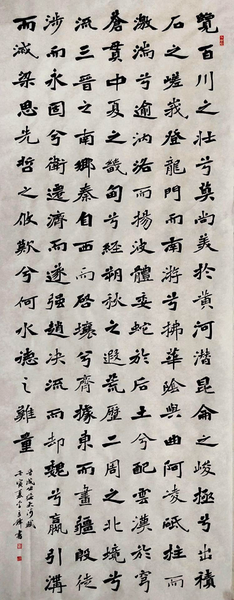 覽百川之壯兮莫尚美於黃河潛昆侖之峻極兮出積
石之嵯峨登龍門而南游兮拂華陰與曲阿凌砥柱而
激湍兮逾汭洛而揚波體委蛇於后土兮配雲漢於穹
蒼貫中夏之畿甸兮經朔狄之遐荒歷二周之北境兮
流三晉之南鄉秦自西而啟壤兮齊據東而畫疆殷徒
涉而永固兮衛遷濟而遂強趙決流而却魏兮嬴引溝
而滅梁思先哲之攸歎兮何水德之難量
壬寅夏書